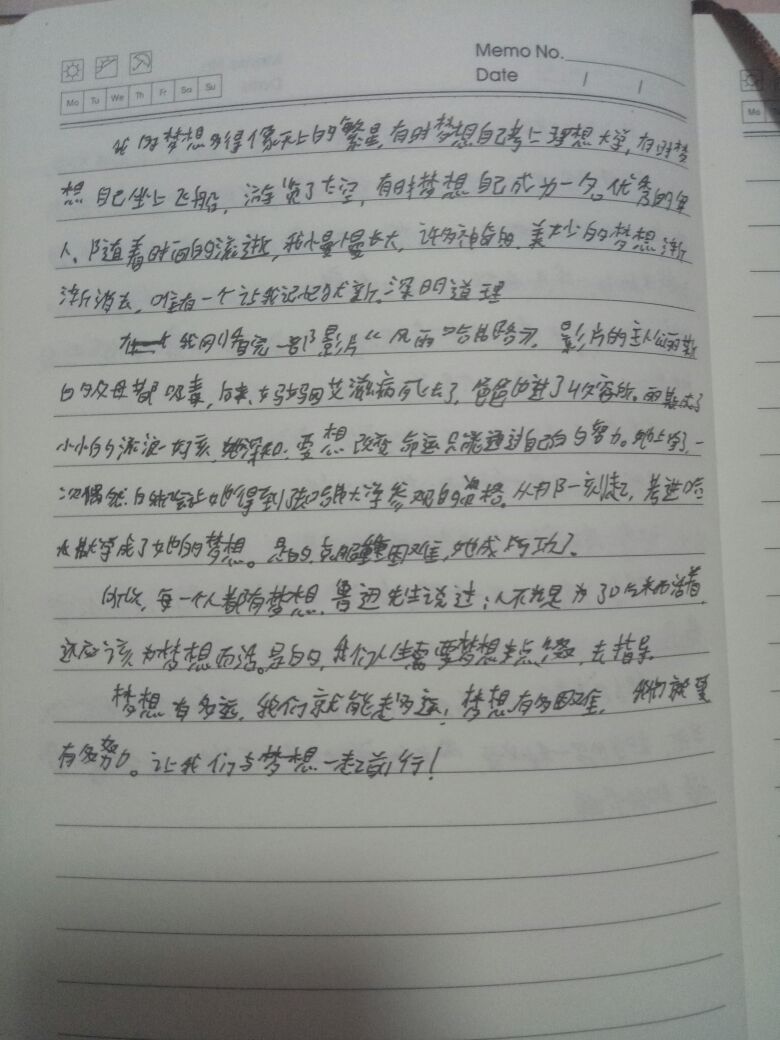 Memo No.
Date / /
Mo Tu We Th Fr Sa Su
我的梦想多得像天上的繁星,有时梦想自己考上理想大学,有时梦
想自己坐上飞船,游览了太空,有时梦想自己成为一名优秀的军
人、随着时间的流逝,我慢慢长大,许多神奇的、美妙的梦想渐
渐消去,唯有一个让我记忆犹新、深明道理
我刚看完一部影片《风雨哈佛路》,影片的主人公丽斯
的父母都吸毒,后来、妈妈因艾滋病死去了,爸爸也进了收容所。丽斯成了
小小的流浪女孩,她深知:要想改变命运只能通过自己的努力。她上学了,一
次偶然的机会让她得到张哈佛大学参观的资格。从那一刻起,考进哈
大学成了她的梦想。是的,克服困难,她成功了。
所以,每一个人都有梦想,鲁迅先生说过:人不光是为了吃米而活着,
还应该为梦想而活。是的,我们人生需要梦想来点缀,去指导
梦想有多远,我们就能走多远,梦想有多困难,我们就要
有多努力。让我们与梦想一起前行!
Mo